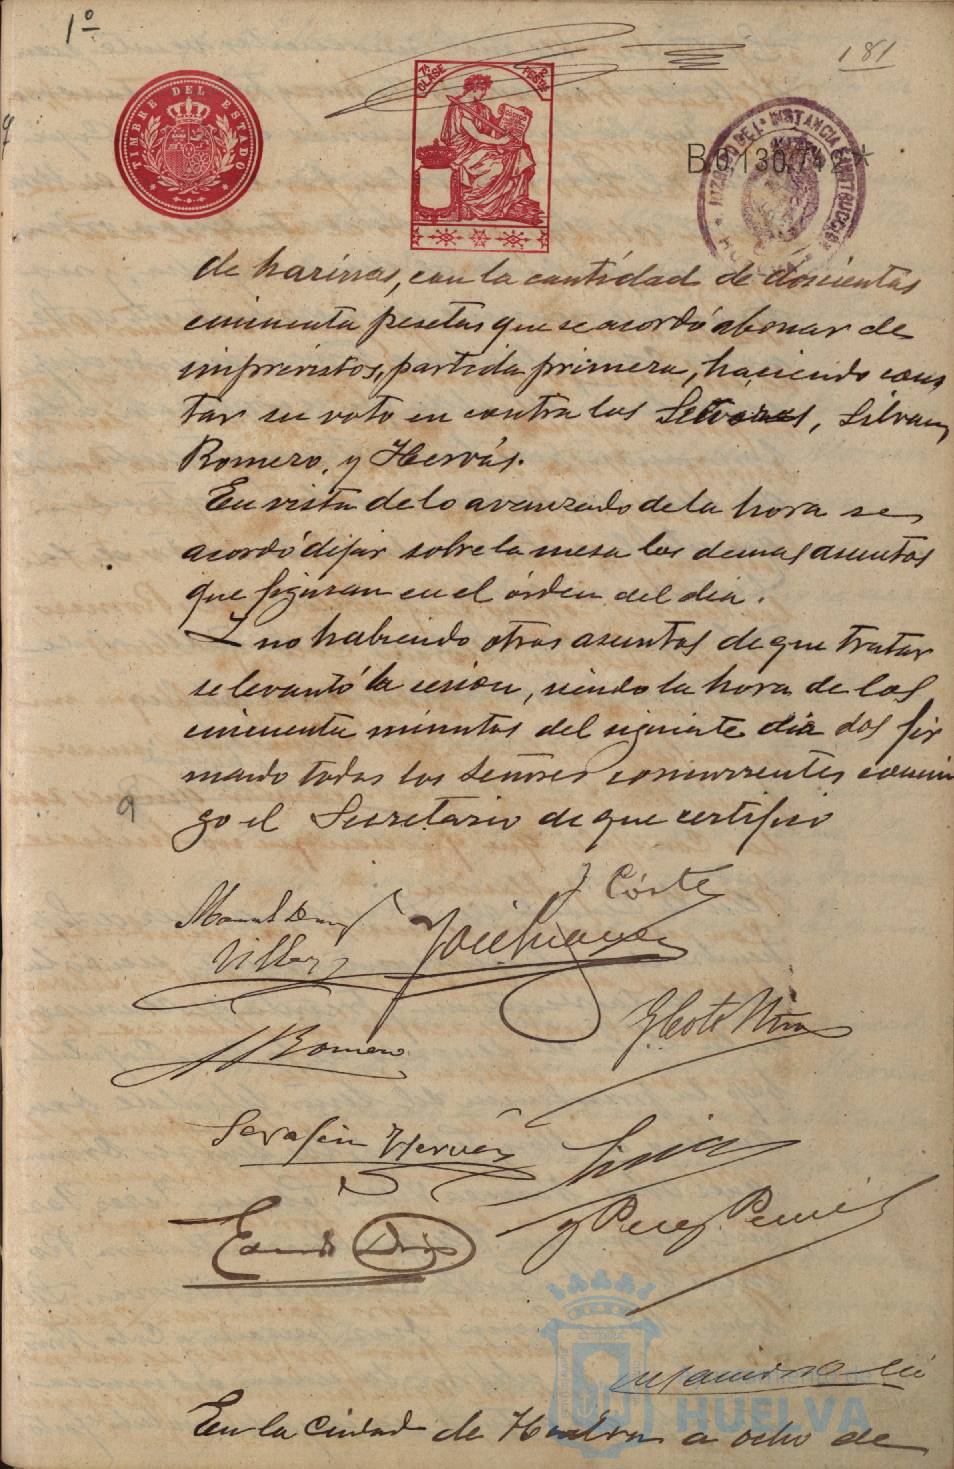 1º
181
TIMBRE DEL ESTADO
7ª CLASE 2 PESETAS
B.0.130.742*
JUZGADO DE 1ª INSTANCIA E INSTRUCCION
de harinas, con la cantidad de doscientas
cincuenta pesetas que se acordó abonar de
imprevistos, partida primera, haciendo cons
tar su voto en contra los Señores, Silvan,
Romero, y Hervás.
En vista de lo avanzado de la hora se
acordó dejar sobre la mesa los demas asuntos
que figuran en el órden del dia.
Y no habiendo otros asuntos de que tratar
se levantó la sesion, siendo la hora de las
cincuenta minutos del siguiente dia dos fir
mando todos los Señores concurrentes conmi
go el Secretario de que certifico
J Córte
Villar
Romero
Serafin Hervás
y Perez
HUELVA
En la Ciudad de Huelva a ocho de